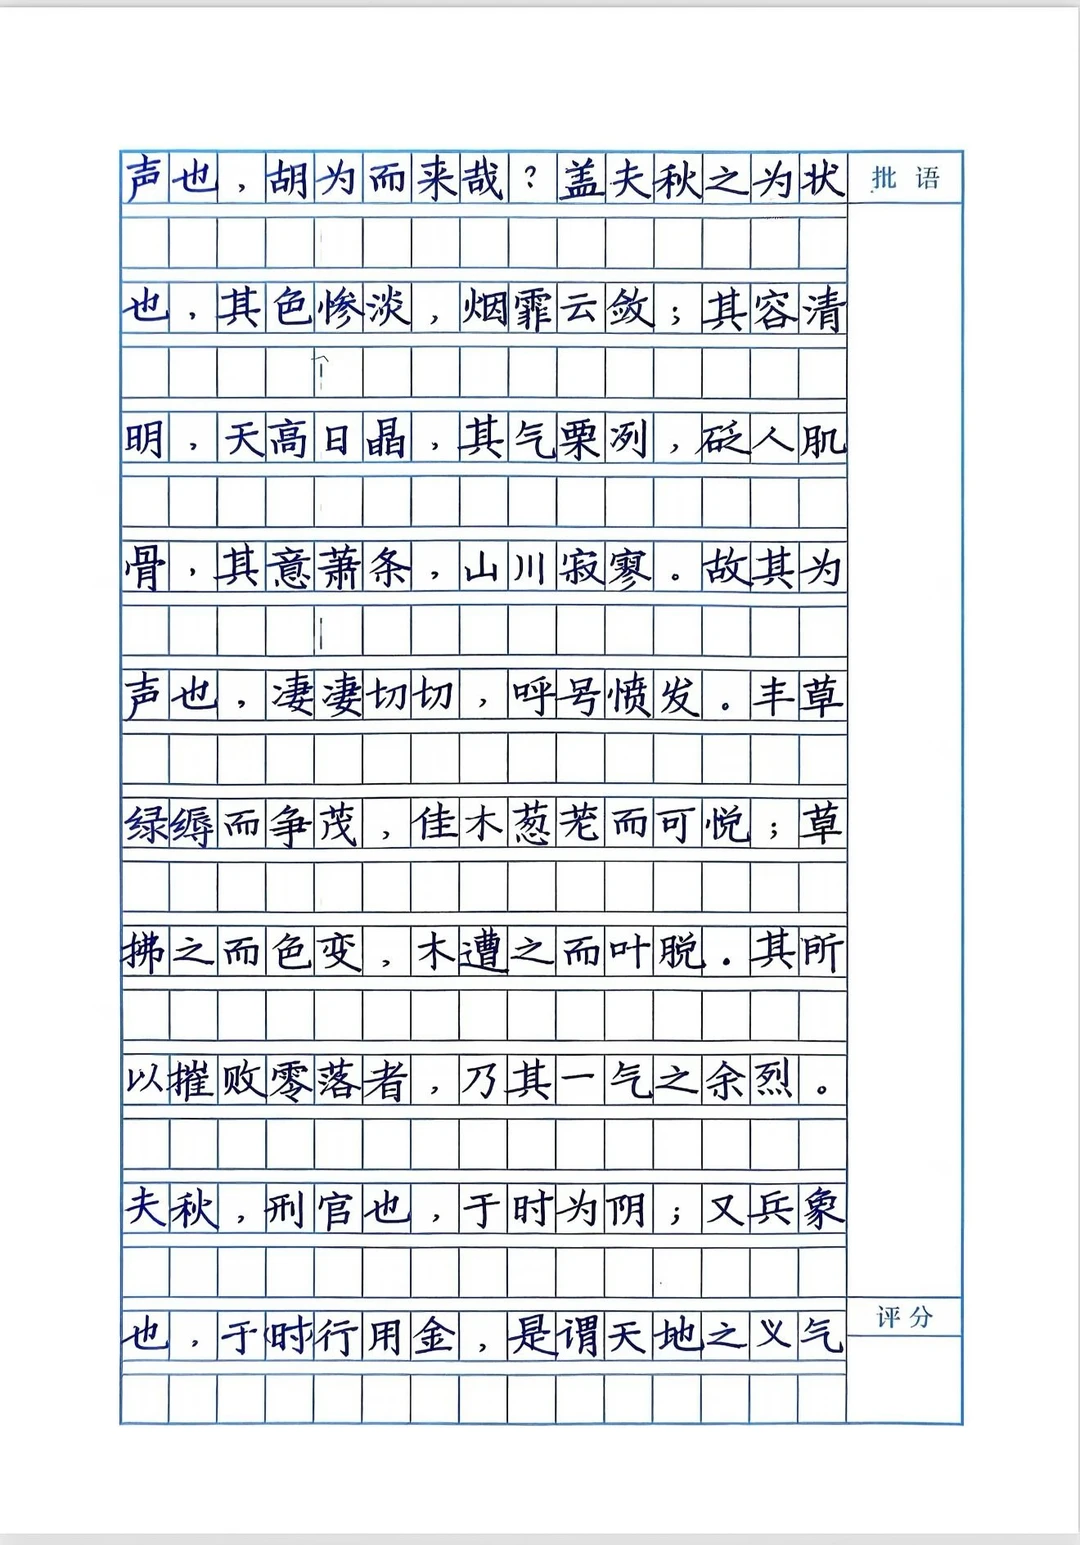 声也，胡为而来哉？盖夫秋之为状
批语
也，其色惨淡，烟霏云敛；其容清
明，天高日晶，其气栗冽，砭人肌
骨，其意萧条，山川寂寥。故其为
声也，凄凄切切，呼号愤发。丰草
绿缛而争茂，佳木葱茏而可悦；草
拂之而色变，木遭之而叶脱．其所
以摧败零落者，乃其一气之余烈。
夫秋，刑官也，于时为阴；又兵象
也，于时行用金，是谓天地之义气
评分